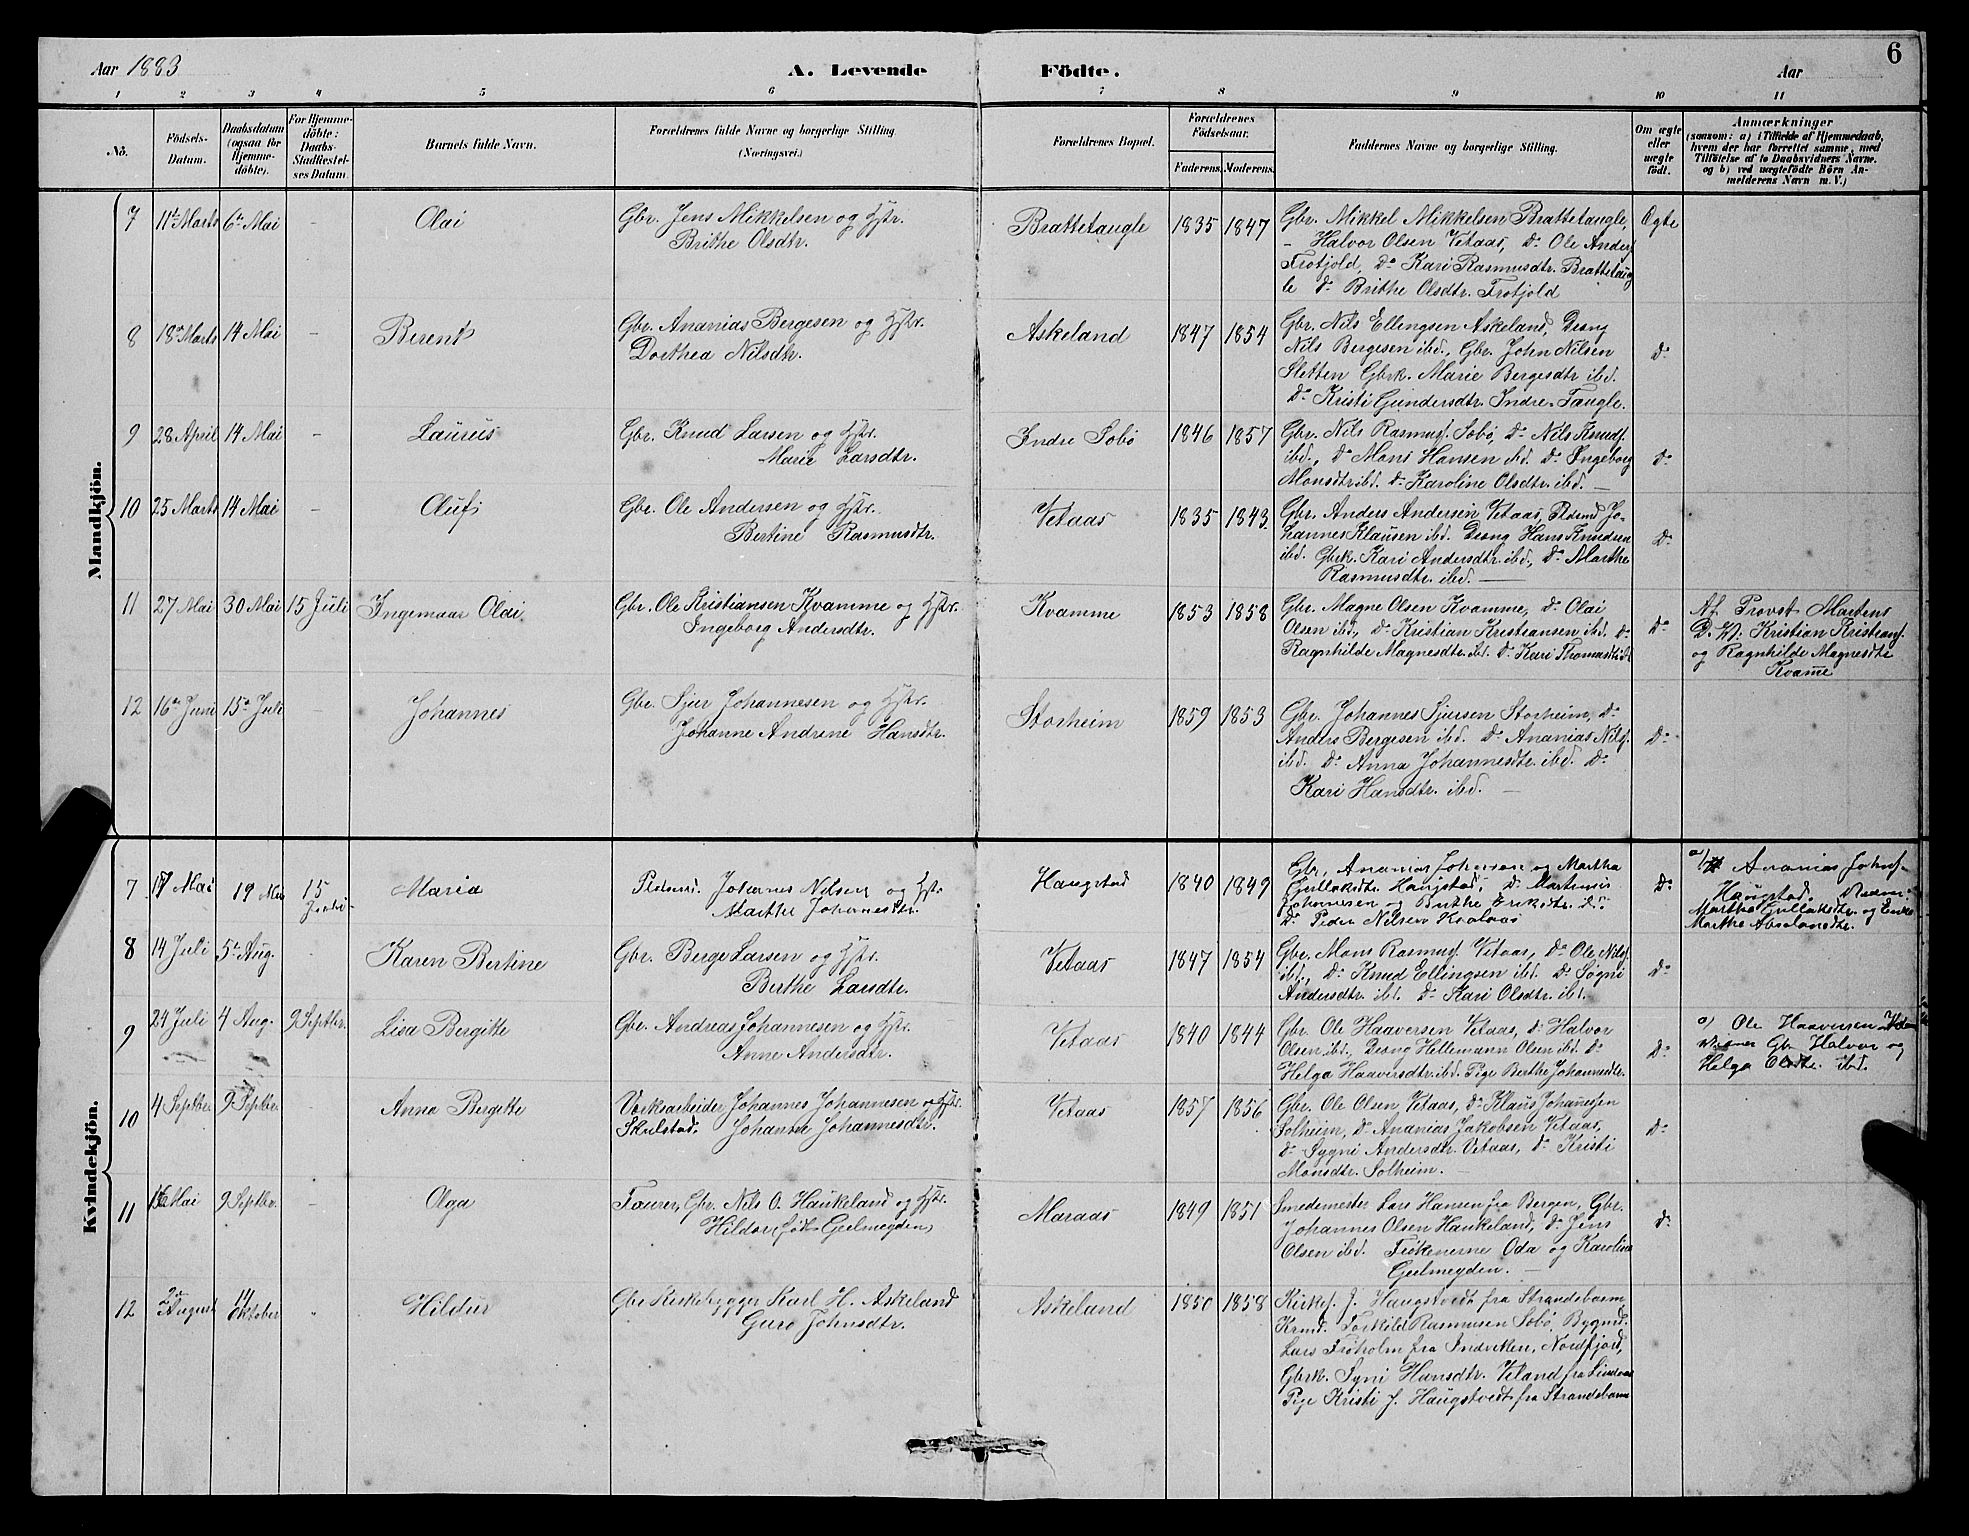 6
Aar 1883
A. Levende Födte.
Aar
1 2 3 4 5 6 7 8 9 10 11
No.
Födsels-Datum.
Daabsdatum (ogsaa for Hjemme-döbte).
For Hjemme-döbte: Daabs-Stadfæstel-ses Datum.
Barnets fulde Navn.
Forældrenes fulde Navne og borgerlige Stilling
(Næringsvei.)
Forældrenes Bopæl.
Forældrenes Födselsaar.
Faderens. Moderens.
Faddernes Navne og borgerlige Stilling.
Om ægte eller uægte födt.
Anmærkninger
(saasom: a) i Tilfælde af Hjemmedaab,
hvem der har forrettet samme, med
Tilföielse af to Daabsvidners Navne.
og b) ved uægtefödte Börn An-
melderens Navn m. V.)
Mandkjön.
7 11te Marts 6te Mai - Olai
Gbr. Jens Mikkelsen og Hstr.
Brithe Olsdtr.
Brattetaugle 1835 1847
Gbr. Mikkel Mikkelsen Brattetaugle,
- Halvor Olsen Vetaas, Do Ole Anders
Frotjold, Do Kari Rasmusdtr. Brattetaug
le Do Brithe Olsdtr. Frotjold
Ægte
8 18de Marts 14 Mai - Berent
Gbr. Ananias Bergesen og Hstr.
Dorthea Nilsdtr.
Askeland 1847 1854
Gbr. Nils Ellingsen Askeland, Dreng
Nils Bergesen ibd., Gbr. John Nilsen
Sletten Gbrk. Marie Bergesdtr ibd.
Do Kristi Gundersdtr. Indre-Taugle.
Do
9 28 April 14 Mai - Laureis
Gbr. Knud Larsen og Hstr.
Marie Larsdtr.
Indre Söbö 1846 1857
Gbr. Nils Rasmuss. Söbö, Do Nils Knuds.
ibd., Do Mons Hansen ibd. Do Ingeborg
Monsdtr ibd. Do Karoline Olsdtr. ibd. —
Do
10 25 Marts 14 Mai - Oluf
Gbr. Ole Andersen og Hstr.
Bertine Rasmusdtr.
Vetaas 1835 1843
Gbr. Anders Andersen Vetaas, Pldsmd Jo-
hannes Klausen ibd. Dreng Hans Knudsen
ibd. Gbrk. Kari Andersdtr. ibd., Do Marthe
Rasmusdtr. ibd. —
Do
11 27 Mai 30 Mai 15 Juli Ingemaar Olai
Gbr. Ole Kristiansen Kvamme og Hstr.
Ingeborg Andersdtr.
Kvamme 1853 1858
Gbr. Magne Olsen Kvamme, Do Olai
Olsen ibd., Do Kristian Kristiansen ibd. Do
Ragnhilde Magnesdtr. ibd. Do Kari Thomasdtr ibd
Do
Af Provst Martens
D. V: Kristian Kristians.
og Ragnhilde Magnesdtr
Kvamme
12 16de Juni 15de Juli - Johannes
Gbr. Sjur Johannesen og Hstr.
Johanne Andrine Hansdtr.
Storheim 1859 1853
Gbr. Johannes Sjursen Storheim, Do
Anders Bergesen ibd. Do Ananias Nils.
ibd. Do Anna Johannesdtr. ibd. Do
Kari Hansdtr. ibd. —
Do
Kvindekjön.
7 17 Mai 19 Mai 15 Juli Maria
Pldsmd. Johannes Nilsen og Hstr
Marthe Johannesdtr.
Haugstad 1840 1849
Gbr. Ananias Johnsen og Martha
Gullaksdtr Haugstad, Do Martinus
Johannesen og Brithe Eriksdtr. ibd.
Do Peder Nilsen
Do
a) Ananias Johns.
Haugstad.
Martha Gullaksdtr. og Enke
Martha Absalonsdtr.
8 14 Juli 5te Aug. Karen Bertine
Gbr. Berge Larsen og Hstr.
Berthe Larsdtr.
Vetaas 1847 1854
Gbr. Mons Rasmuss. Vetaas, Do Ole Nils.
ibd., Do Knud Ellingsen ibd. Do Søgni
Andersdtr. ibd. Do Kari Olsdtr. ibd.
Do
9 24 Juli 4 Aug. 9 Septbr. Lisa Bergitte
Gbr. Andreas Johannesen og Hstr.
Anne Andersdtr.
Vetaas 1840 1844
Gbr. Ole Haaversen Vetaas, Do Halvor
Olsen ibd., Dreng Hellemann Olsen ibd. Do
Helga Haaversdtr. ibd. Pige Berthe Johannesdtr.
Do
a) Ole Haaversen
Gbr Halvor og
Helga Olsdtr. ibd.
10 4 Septbr. 9 Septbr. Anna Bergitte
Værksarbeider Johannes Johannesen og Hstr.
Skulstad. Johanne Johannesdtr.
Vetaas 1857 1856
Gbr. Ole Olsen Vetaas, Do Klaus Johannessen
Solheim, Do Ananias Jakobsen Vetaas,
Do Sygni Andersdtr. Vetaas, Do Kristi
Monsdtr. Solheim. —
Do
11 Mai 9 Septbr. - Olga
Gbr. Nils O. Haukeland og Hstr.
Hilda (föd Geelmeyden)
Maraas 1849 1851
Smedemester Lars Hansen fra Bergen, Gbr.
Johannes Olsen Haukeland, Do Jens
Olsen ibd. Frökenerne Oda og Karoline
Geelmeyden. —
Do
12 August 14 Oktober Hildur
Gbr Kirkebygger Karl H. Askeland
Guro Johnsdtr.
Askeland 1850 1858
Kirkes. J. Haugstvedt fra Strandebarm
Krmd. Torkild Rasmusen Söbö, Bygmd.
Lars Fröholm fra Indviken, Nordfjord,
Gbrk. Syni Hansdtr. Veland fra
Pige Kristi J. Haugstvedt fra Strandebarm